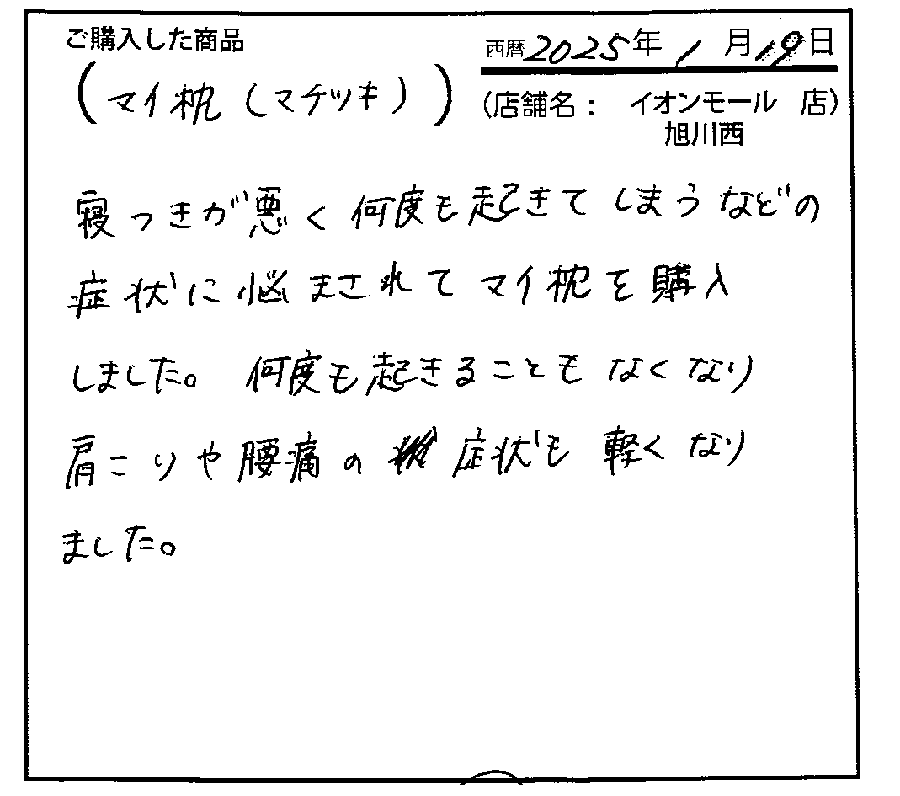 ご購入した商品
西暦2025年1月19日
(マイ枕(マテッキ))
(店舗名: イオンモール 店)
旭川西
寝つきが悪く何度も起きてしまうなどの
症状に悩まされてマイ枕を購入
しました。何度も起きることもなくなり
肩こりや腰痛の症状も軽くなり
ました。